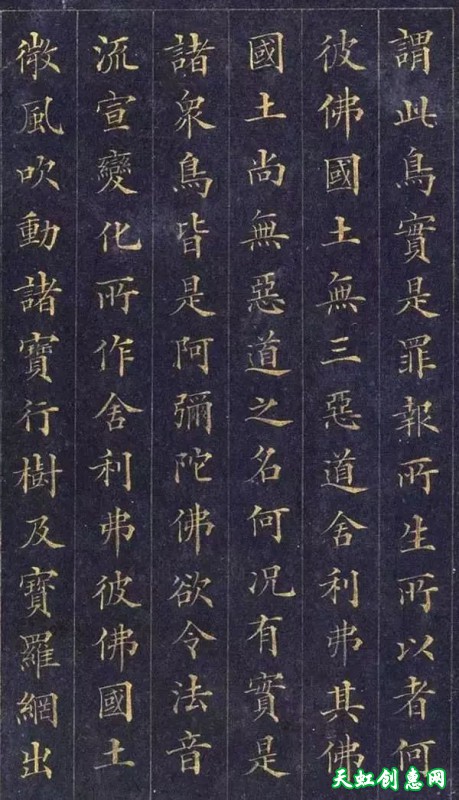 謂此鳥實是罪報所生所以者何
彼佛國土無三惡道舍利弗其佛
國土尚無惡道之名何況有實是
諸衆鳥皆是阿彌陀佛欲令法音
流宣變化所作舍利弗彼佛國土
微風吹動諸寶行樹及寶羅網出
天虹创惠网